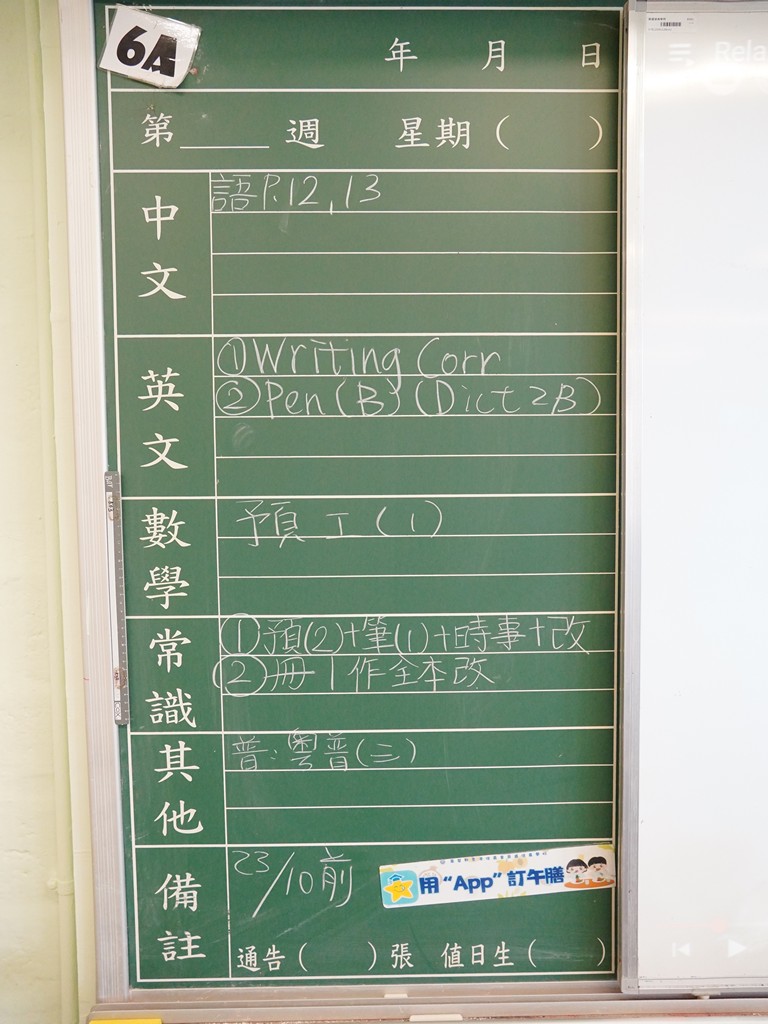 6A
年 月 日
第____週 星期( )
中文
語P.12,13
英文
①Writing Corr
②Pen(B)(Dict 2B)
數學
預工(1)
常識
①預(2)+筆(1)+時事+改
②冊1作全本改
其他
普:粵普(三)
備註
23/10前
用“App”訂午膳
通告( )張 值日生( )
Rela